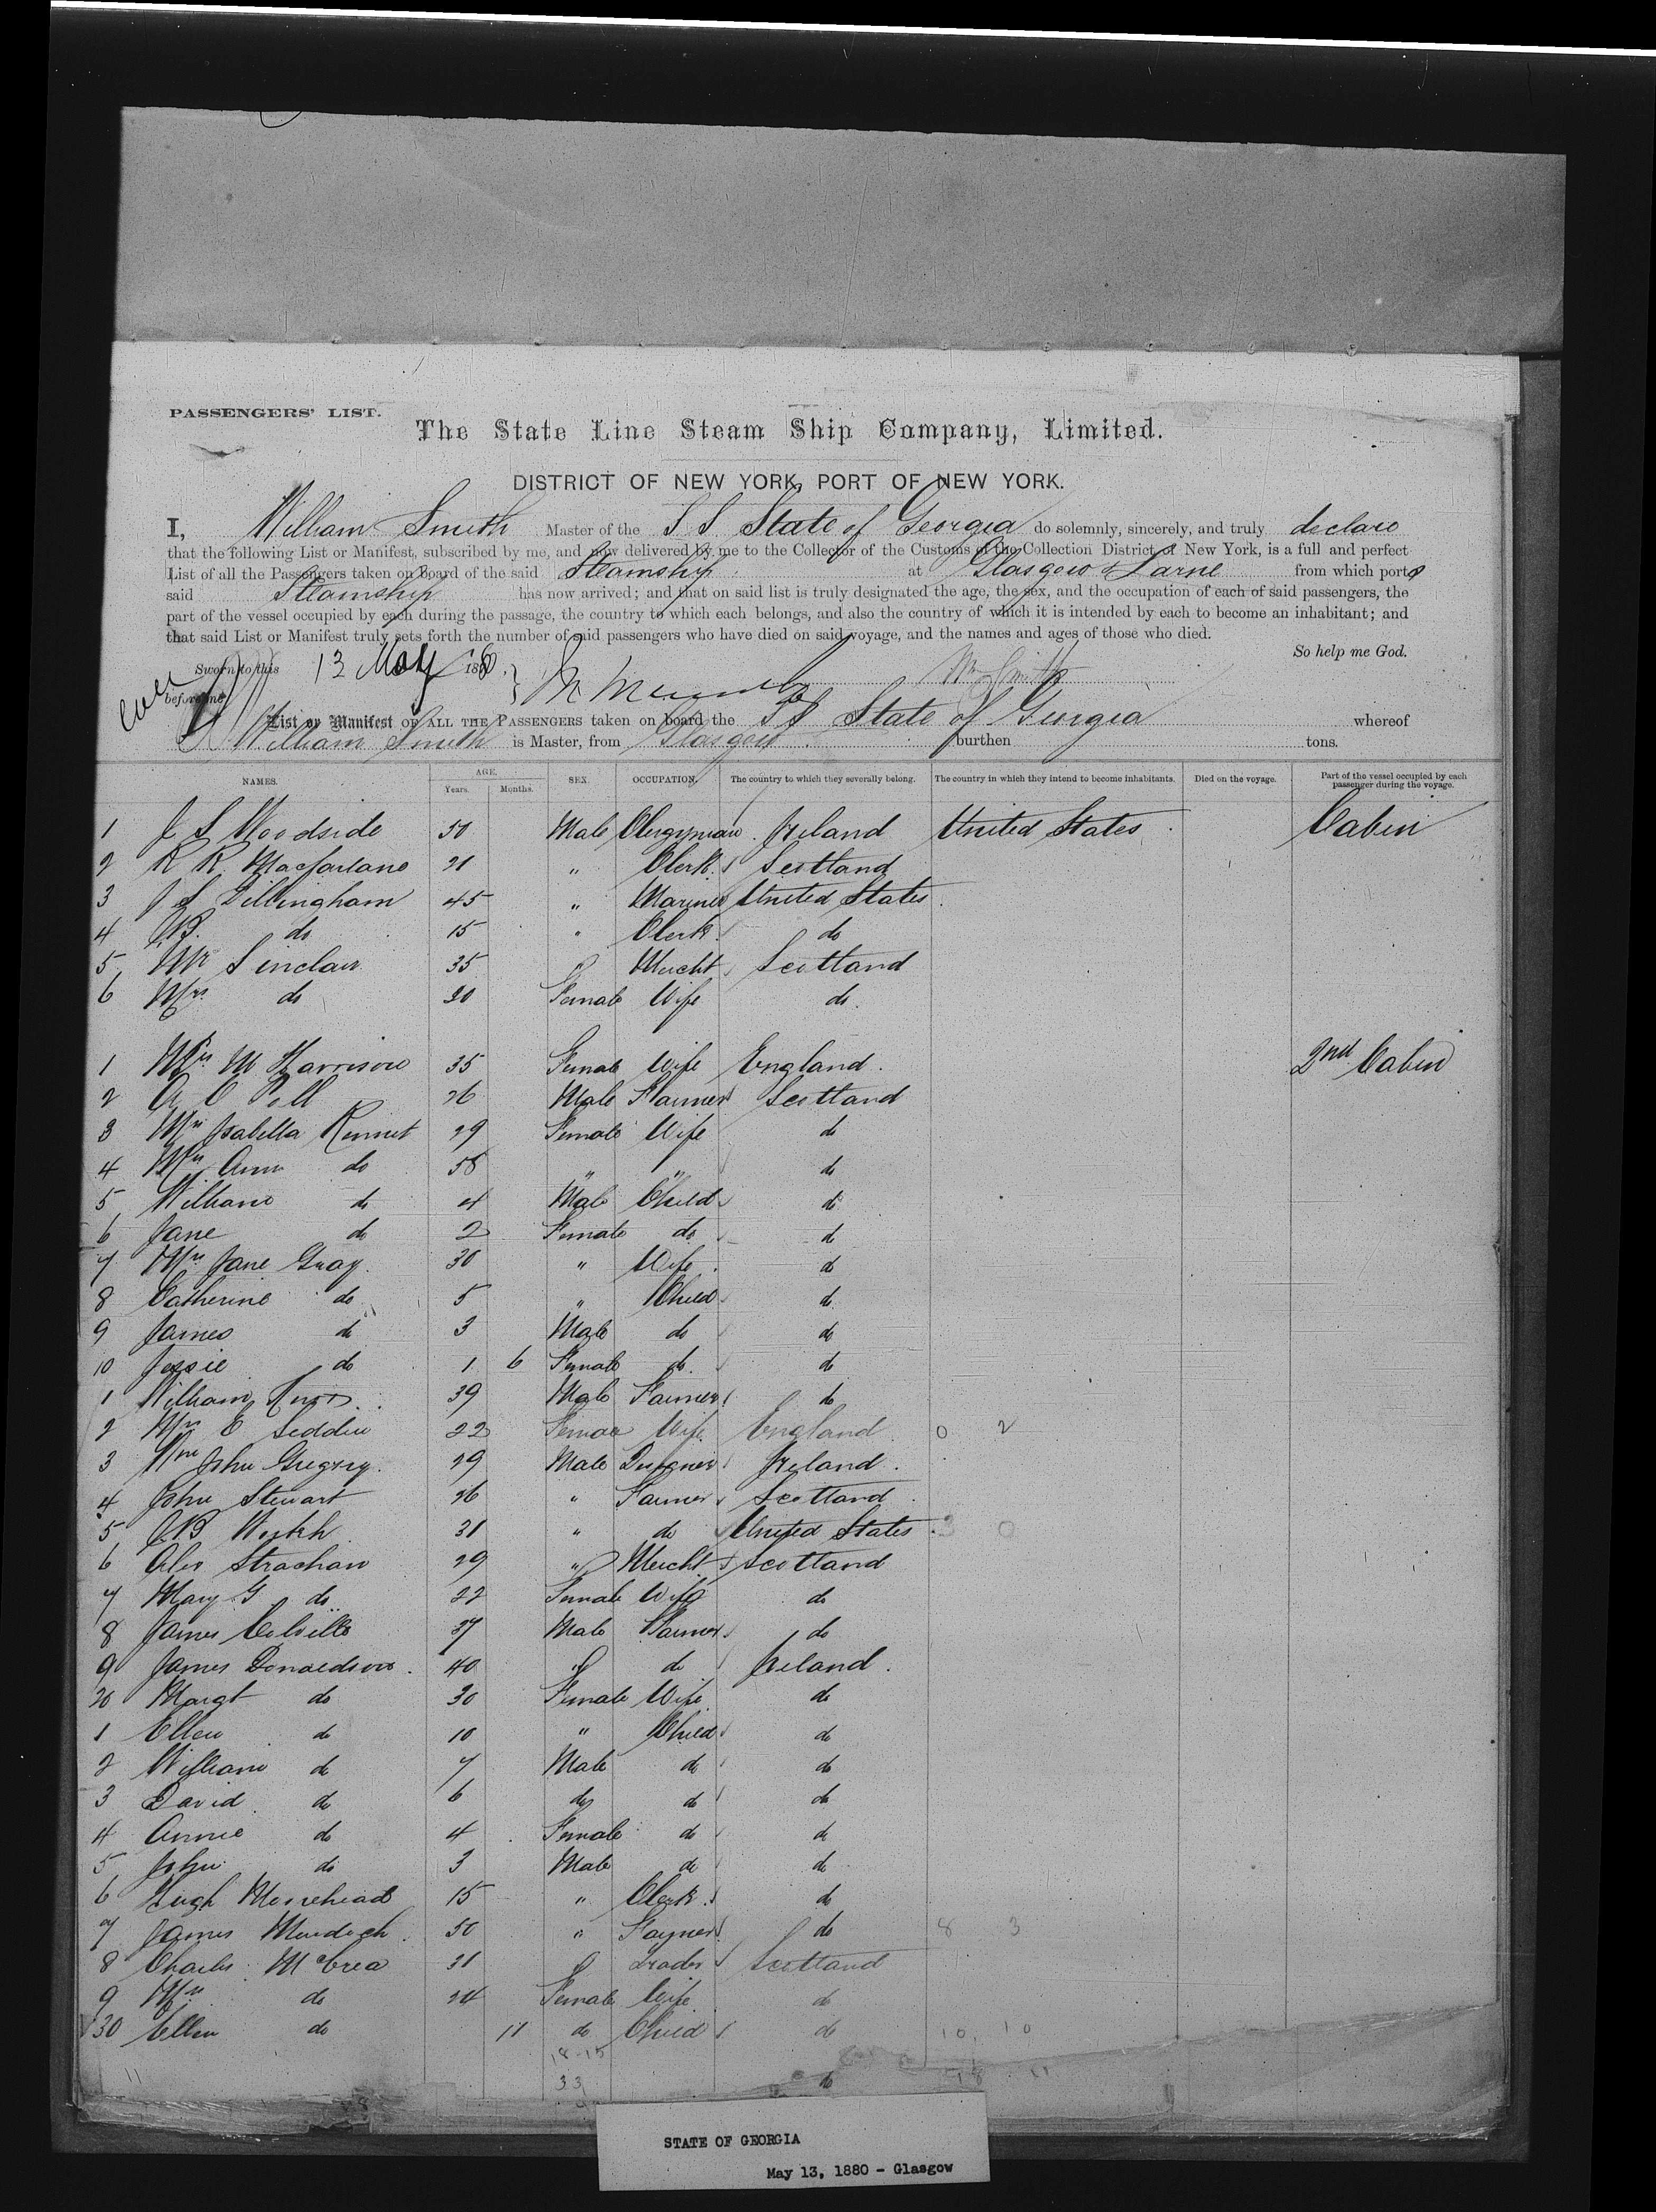 PASSENGERS' LIST.
The State Line Steam Ship Company, Limited.
DISTRICT OF NEW YORK, PORT OF NEW YORK.
I, William Smith Master of the S S State of Georgia do solemnly, sincerely, and truly declare
that the following List or Manifest, subscribed by me, and now delivered by me to the Collector of the Customs of the Collection District of New York, is a full and perfect
List of all the Passengers taken on board of the said Steamship at Glasgow & Larne from which ports
said Steamship has now arrived; and that on said list is truly designated the age, the sex, and the occupation of each of said passengers, the
part of the vessel occupied by each during the passage, the country to which each belongs, and also the country of which it is intended by each to become an inhabitant; and
that said List or Manifest truly sets forth the number of said passengers who have died on said voyage, and the names and ages of those who died.
So help me God.
Sworn to this 13 May 1880
before me Wm Smith
List or Manifest OF ALL THE PASSENGERS taken on board the S S State of Georgia whereof
William Smith is Master, from Glasgow burthen tons.
NAMES. AGE. Years. Months. SEX. OCCUPATION. The country to which they severally belong. The country in which they intend to become inhabitants. Died on the voyage. Part of the vessel occupied by each passenger during the voyage.
1 J S Woodside 50 Male Clergyman Ireland United States Cabin
2 R R Macfarlane 21 " Clerk Scotland
3 J S Dillingham 45 " Mariner United States
4 do 15 " Clerk do
5 Mr Sinclair 35 " Mercht Scotland
6 Mrs do 30 Female Wife do
1 Mrs M Harrison 35 Female Wife England 2nd Cabin
2 A C 26 Male Farmer Scotland
3 Mrs Isabella Rennet 29 Female Wife do
4 Mrs Ann do 58 " " do
5 William do 4 Male Child do
6 Jane do 2 Female do do
7 Mrs Jane Gray 30 " Wife do
8 Catherine do 5 " Child do
9 James do 3 Male do do
10 Jessie do 1 6 Female do do
1 William 39 Male Farmer do
2 Mrs E Seddon 22 Female Wife England 0 2
3 Wm John Gregory 29 Male Ireland
4 John Stewart 26 " Farmer Scotland
5 31 " do United States 3 0
6 Alex Strachan 29 " Mercht Scotland
7 Mary G do 22 Female Wife do
8 James Colville 37 Male Farmer do
9 James Donaldson 40 " do Ireland
20 Margt do 30 Female Wife do
1 Ellen do 10 " Child do
2 William do 7 Male do do
3 David do 6 do do do
4 Annie do 4 Female do do
5 John do 3 Male do do
6 Hugh Morehead 15 " Clerk do
7 James Murdoch 50 " Farmer do 8 3
8 Charles McCrea 31 " Trader Scotland
9 Mrs do 24 Female Wife do
30 Ellen do 11 do Child do 10 10
18-15
33 do
STATE OF GEORGIA
May 13, 1880 - Glasgow